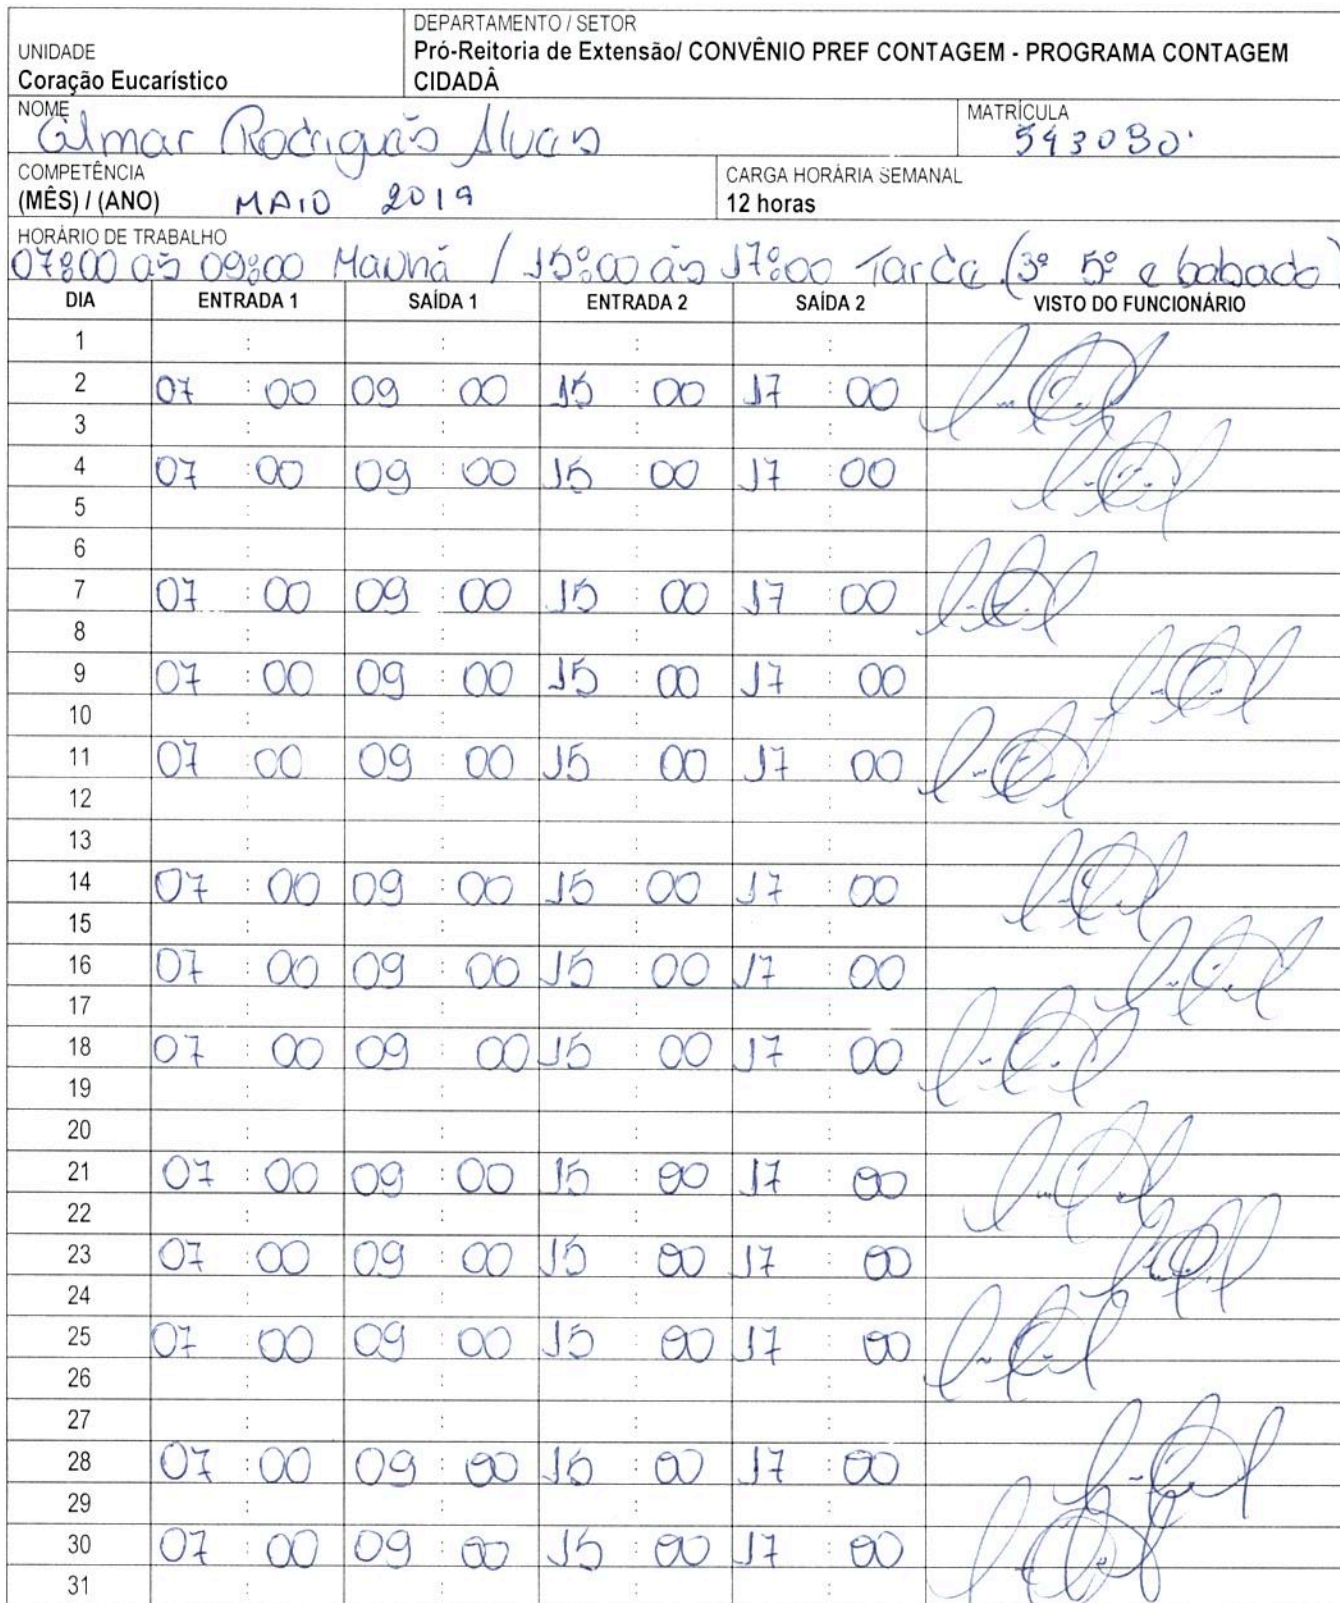 DEPARTAMENTO / SETOR
UNIDADE
Pró-Reitoria de Extensão/ CONVÊNIO PREF CONTAGEM - PROGRAMA CONTAGEM
Coração Eucarístico
CIDADÂ
NOME
Gilmar Rodrigues Alves
MATRÍCULA
543030
COMPETÊNCIA
(MÊS) / (ANO) MAIO 2019
CARGA HORÁRIA SEMANAL
12 horas
HORÁRIO DE TRABALHO
07:00 às 09:00 Manhã / 15:00 às 17:00 Tarde (3º 5º e sabado)
DIA ENTRADA 1 SAÍDA 1 ENTRADA 2 SAÍDA 2 VISTO DO FUNCIONÁRIO
1 : : : :
2 07 : 00 09 : 00 15 : 00 17 : 00
3 : : : :
4 07 : 00 09 : 00 15 : 00 17 : 00
5 : : : :
6 : : : :
7 07 : 00 09 : 00 15 : 00 17 : 00
8 : : : :
9 07 : 00 09 : 00 15 : 00 17 : 00
10 : : : :
11 07 : 00 09 : 00 15 : 00 17 : 00
12 : : : :
13 : : : :
14 07 : 00 09 : 00 15 : 00 17 : 00
15 : : : :
16 07 : 00 09 : 00 15 : 00 17 : 00
17 : : : :
18 07 : 00 09 : 00 15 : 00 17 : 00
19 : : : :
20 : : : :
21 07 : 00 09 : 00 15 : 00 17 : 00
22 : : : :
23 07 : 00 09 : 00 15 : 00 17 : 00
24 : : : :
25 07 : 00 09 : 00 15 : 00 17 : 00
26 : : : :
27 : : : :
28 07 : 00 09 : 00 15 : 00 17 : 00
29 : : : :
30 07 : 00 09 : 00 15 : 00 17 : 00
31 : : : :